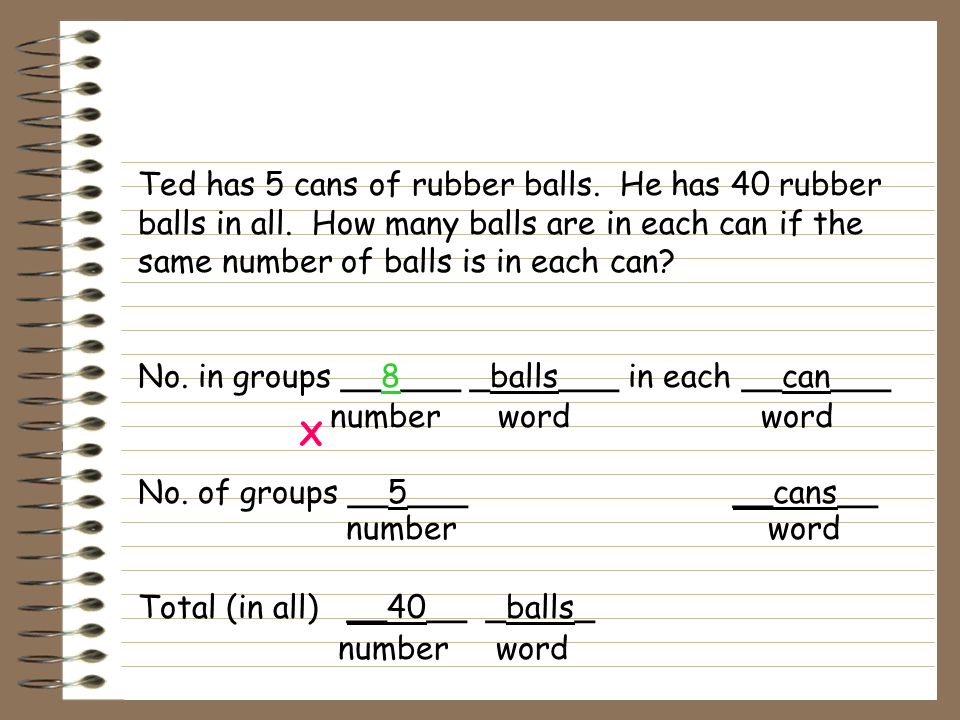 Ted has 5 cans of rubber balls. He has 40 rubber
balls in all. How many balls are in each can if the
same number of balls is in each can?
No. in groups __8___ _balls___ in each __can___
number word word
x
No. of groups __5___ __cans__
number word
Total (in all) __40__ _balls_
number word